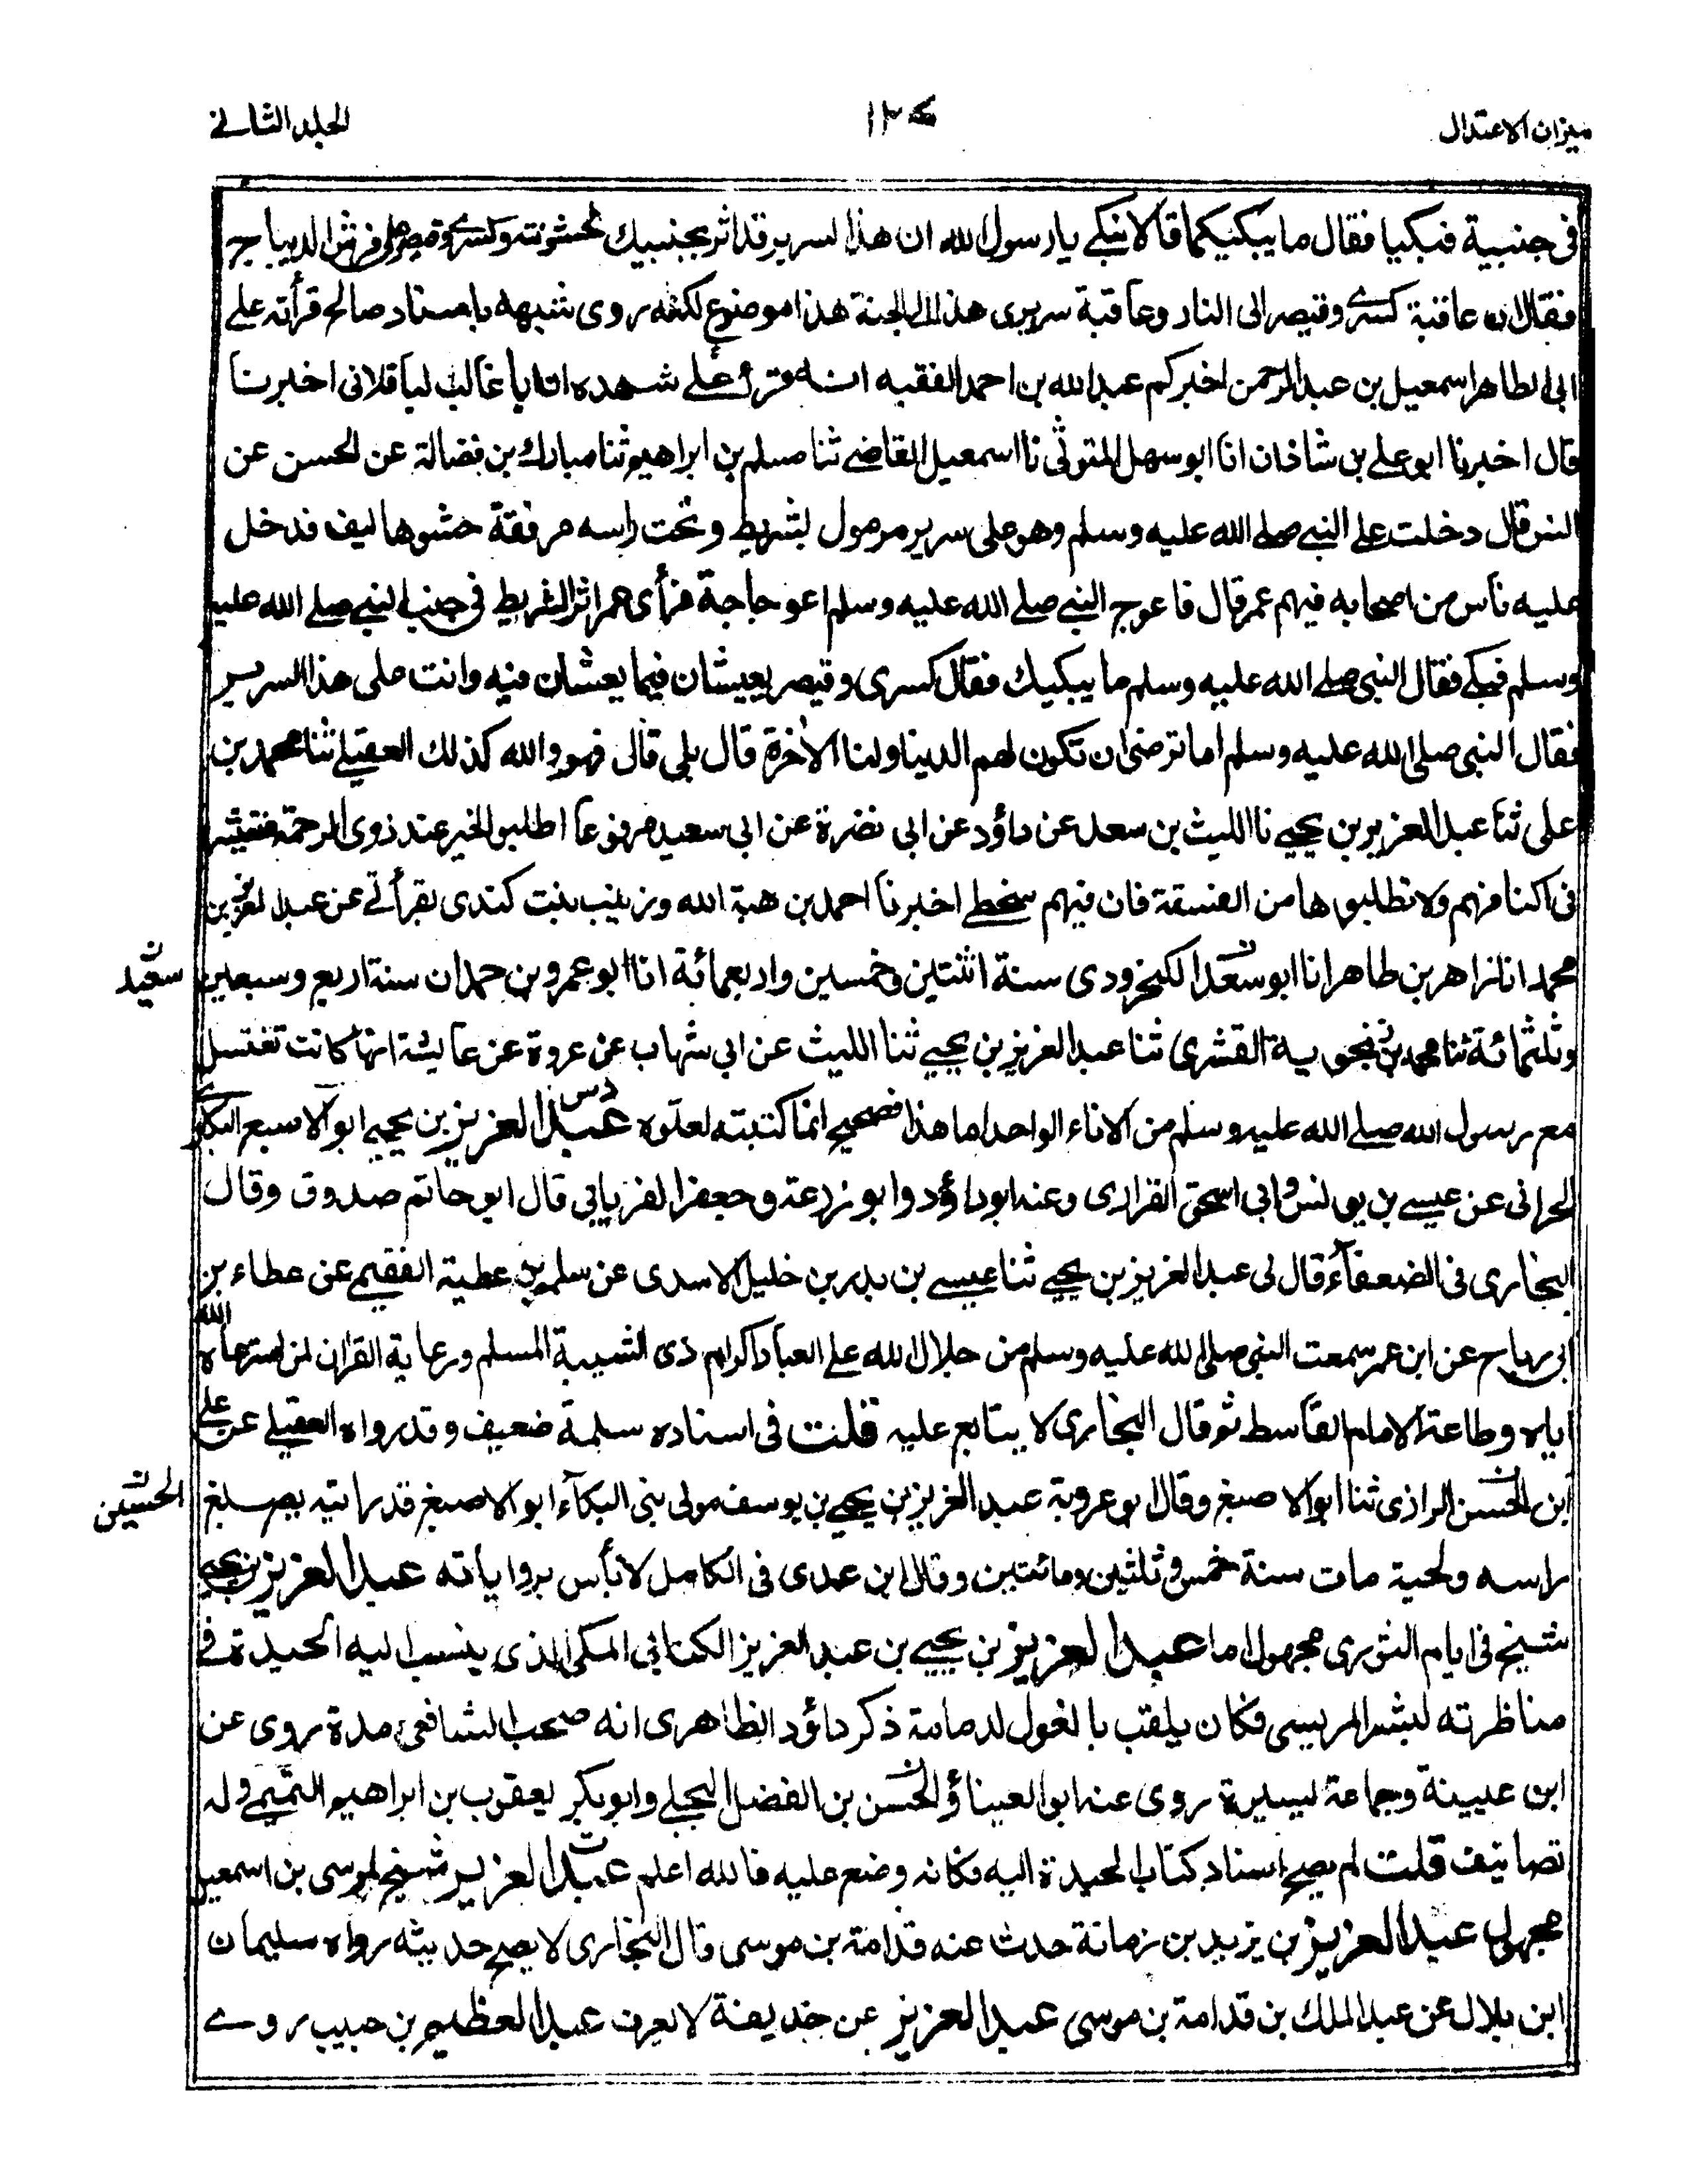 ميزان الاعتدال
الجلد الثاني
في جنبية فبكيا فقال ما يبكيكما قالا نبكي يا رسول الله ان هذا السرير قد اثر بجنبيك بخشونته وكسرى وقيصر على فرش الديباج
فقال ان عاقبة كسرى وقيصر الى النار وعاقبة سريرى هذا الى الجنة هذا موضوع لكنه روى شبهه باسناد صالح قرأته على
ابي الطاهر اسمعيل بن عبد الرحمن اخبركم عبد الله بن احمد الفقيه انه قرأ على شهده انا ابا غالب لباقلانى اخبرنا
قال اخبرنا ابو علي بن شاذان انا ابو سهل المتوثى نا اسمعيل القاضي ثنا مسلم بن ابراهيم ثنا مبارك بن فضالة عن الحسن عن
انس قال دخلت على النبي صلى الله عليه وسلم وهو على سرير مرمول لشريط وتحت راسه مرفقة حشوها ليف فدخل
عليه ناس من اصحابه فيهم عمر قال فاعوج النبي صلى الله عليه وسلم اعوجاجة فرأى عمر اثر الشريط في جنب النبي صلى الله عليه
وسلم فبكى فقال النبي صلى الله عليه وسلم ما يبكيك فقال كسرى وقيصر يعيشان فيما يعشان فيه وانت على هذا السرير
فقال النبي صلى الله عليه وسلم اما ترضى ان تكون لهم الدنيا ولنا الاخرة قال بلى قال فهو والله كذلك العقيلي ثنا محمد بن
على ثنا عبد العزيز بن يحيي نا الليث بن سعد عن داؤد عن ابى نضرة عن ابي سعيد مرفوعا اطلبوا الخير عند ذوى الرحمة
في اكنافهم ولا تطلبوها من الفسقة فان فيهم سخطي اخبرنا احمد بن هبة الله وزينب بنت كندى بقرأتي عن عبد العزيز بن
محمد انا زاهر بن طاهر انا ابو سعد الكنجرودى سنة اثنتين وخمسين واربعمائة انا ابو عمرو بن حمدان سنة اربع وسبعين
سعيد
وثلثمائة ثنا محمد بن نجوية القشرى ثنا عبد العزيز بن يحيي ثنا الليث عن ابي شهاب عن عروة عن عايشة انها كانت تغتسل
مع رسول الله صلى الله عليه وسلم من الاناء الواحد اما هذا فصحيح انما كتبته لعلوه عبد العزيز بن يحيي ابو الاسبع البكائي
الحرانى عن عيسى بن يونس وابي اسحق الفزارى وعنه ابو داؤد وابو زرعة وجعفر الفريابي قال ابو حاتم صدوق وقال
البخارى فى الضعفآء قال لى عبد العزيز بن يحيي ثنا عيسى بن بدر بن خليل الاسدى عن سلمة بن عطية الفقيمي عن عطاء بن
ابي رباح عن ابن عمر سمعت النبي صلى الله عليه وسلم من جلال الله على العباد اكرام ذى الشيبة المسلم ورعاية القرآن لمن استرعاه الله
اياه وطاعة الامام القاسط ثم قال البخارى لا يتابع عليه قلت في اسناده سلمة ضعيف وقد رواه العقيلي عن علي
ابن الحسن الرازى ثنا ابو الاصبغ وقال ابو عروبة عبد العزيز بن يحيي بن يوسف مولى بنى البكآء ابو الاصبغ قد رايته يصبغ
الحسين
راسه ولحية مات سنة خمس وثلثين ومائتين وقال ابن عدى فى الكامل لا بأس برواياته عبد العزيز بن يحيي
شيخ فى ايام الثورى مجهول اما عبد العزيز بن يحيي بن عبد العزيز الكنانى المكي الذى ينسب اليه الحيدة في
مناظرته لبشر المريسى فكان يلقب بالغول لدمامة ذكر داؤد الظاهرى انه صحب الشافعى مدة روى عن
ابن عيينة وجماعة يسيرة روى عنه ابو العيناؤ الحسن بن الفضل البجلى وابو بكر يعقوب بن ابراهيم التميمي وله
تصانيف قلت لم يصح اسناد كتاب الحيدة اليه فكانه وضع عليه فالله اعلم عبد العزيز شيخ لموسى بن اسمعيل
مجهول عبد العزيز بن يزيد بن زمانة حدث عنه قدامة بن موسى قال البخارى لا يصح حديثه رواه سليمان
ابن بلال عن عبد الملك بن قدامة بن موسى عبد العزيز عن حذيفة لا يعرف عبد العظيم بن حبيب روى